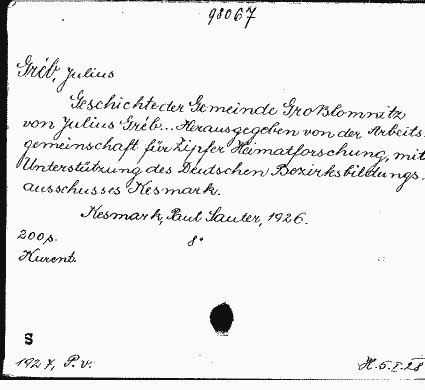 98067
Gréb, Julius
Geschichte der Gemeinde Großlomnitz
von Julius Gréb... Herausgegeben von der Arbeits-
gemeinschaft für Zipser Heimatforschung, mit
Unterstützung des Deutschen Bezirksbildungs-
ausschusses Kesmark.
Kesmark, Paul Sauter, 1926.
200 p. 8°
Kurent.
S
1927, P. v. H. 5. I. 28